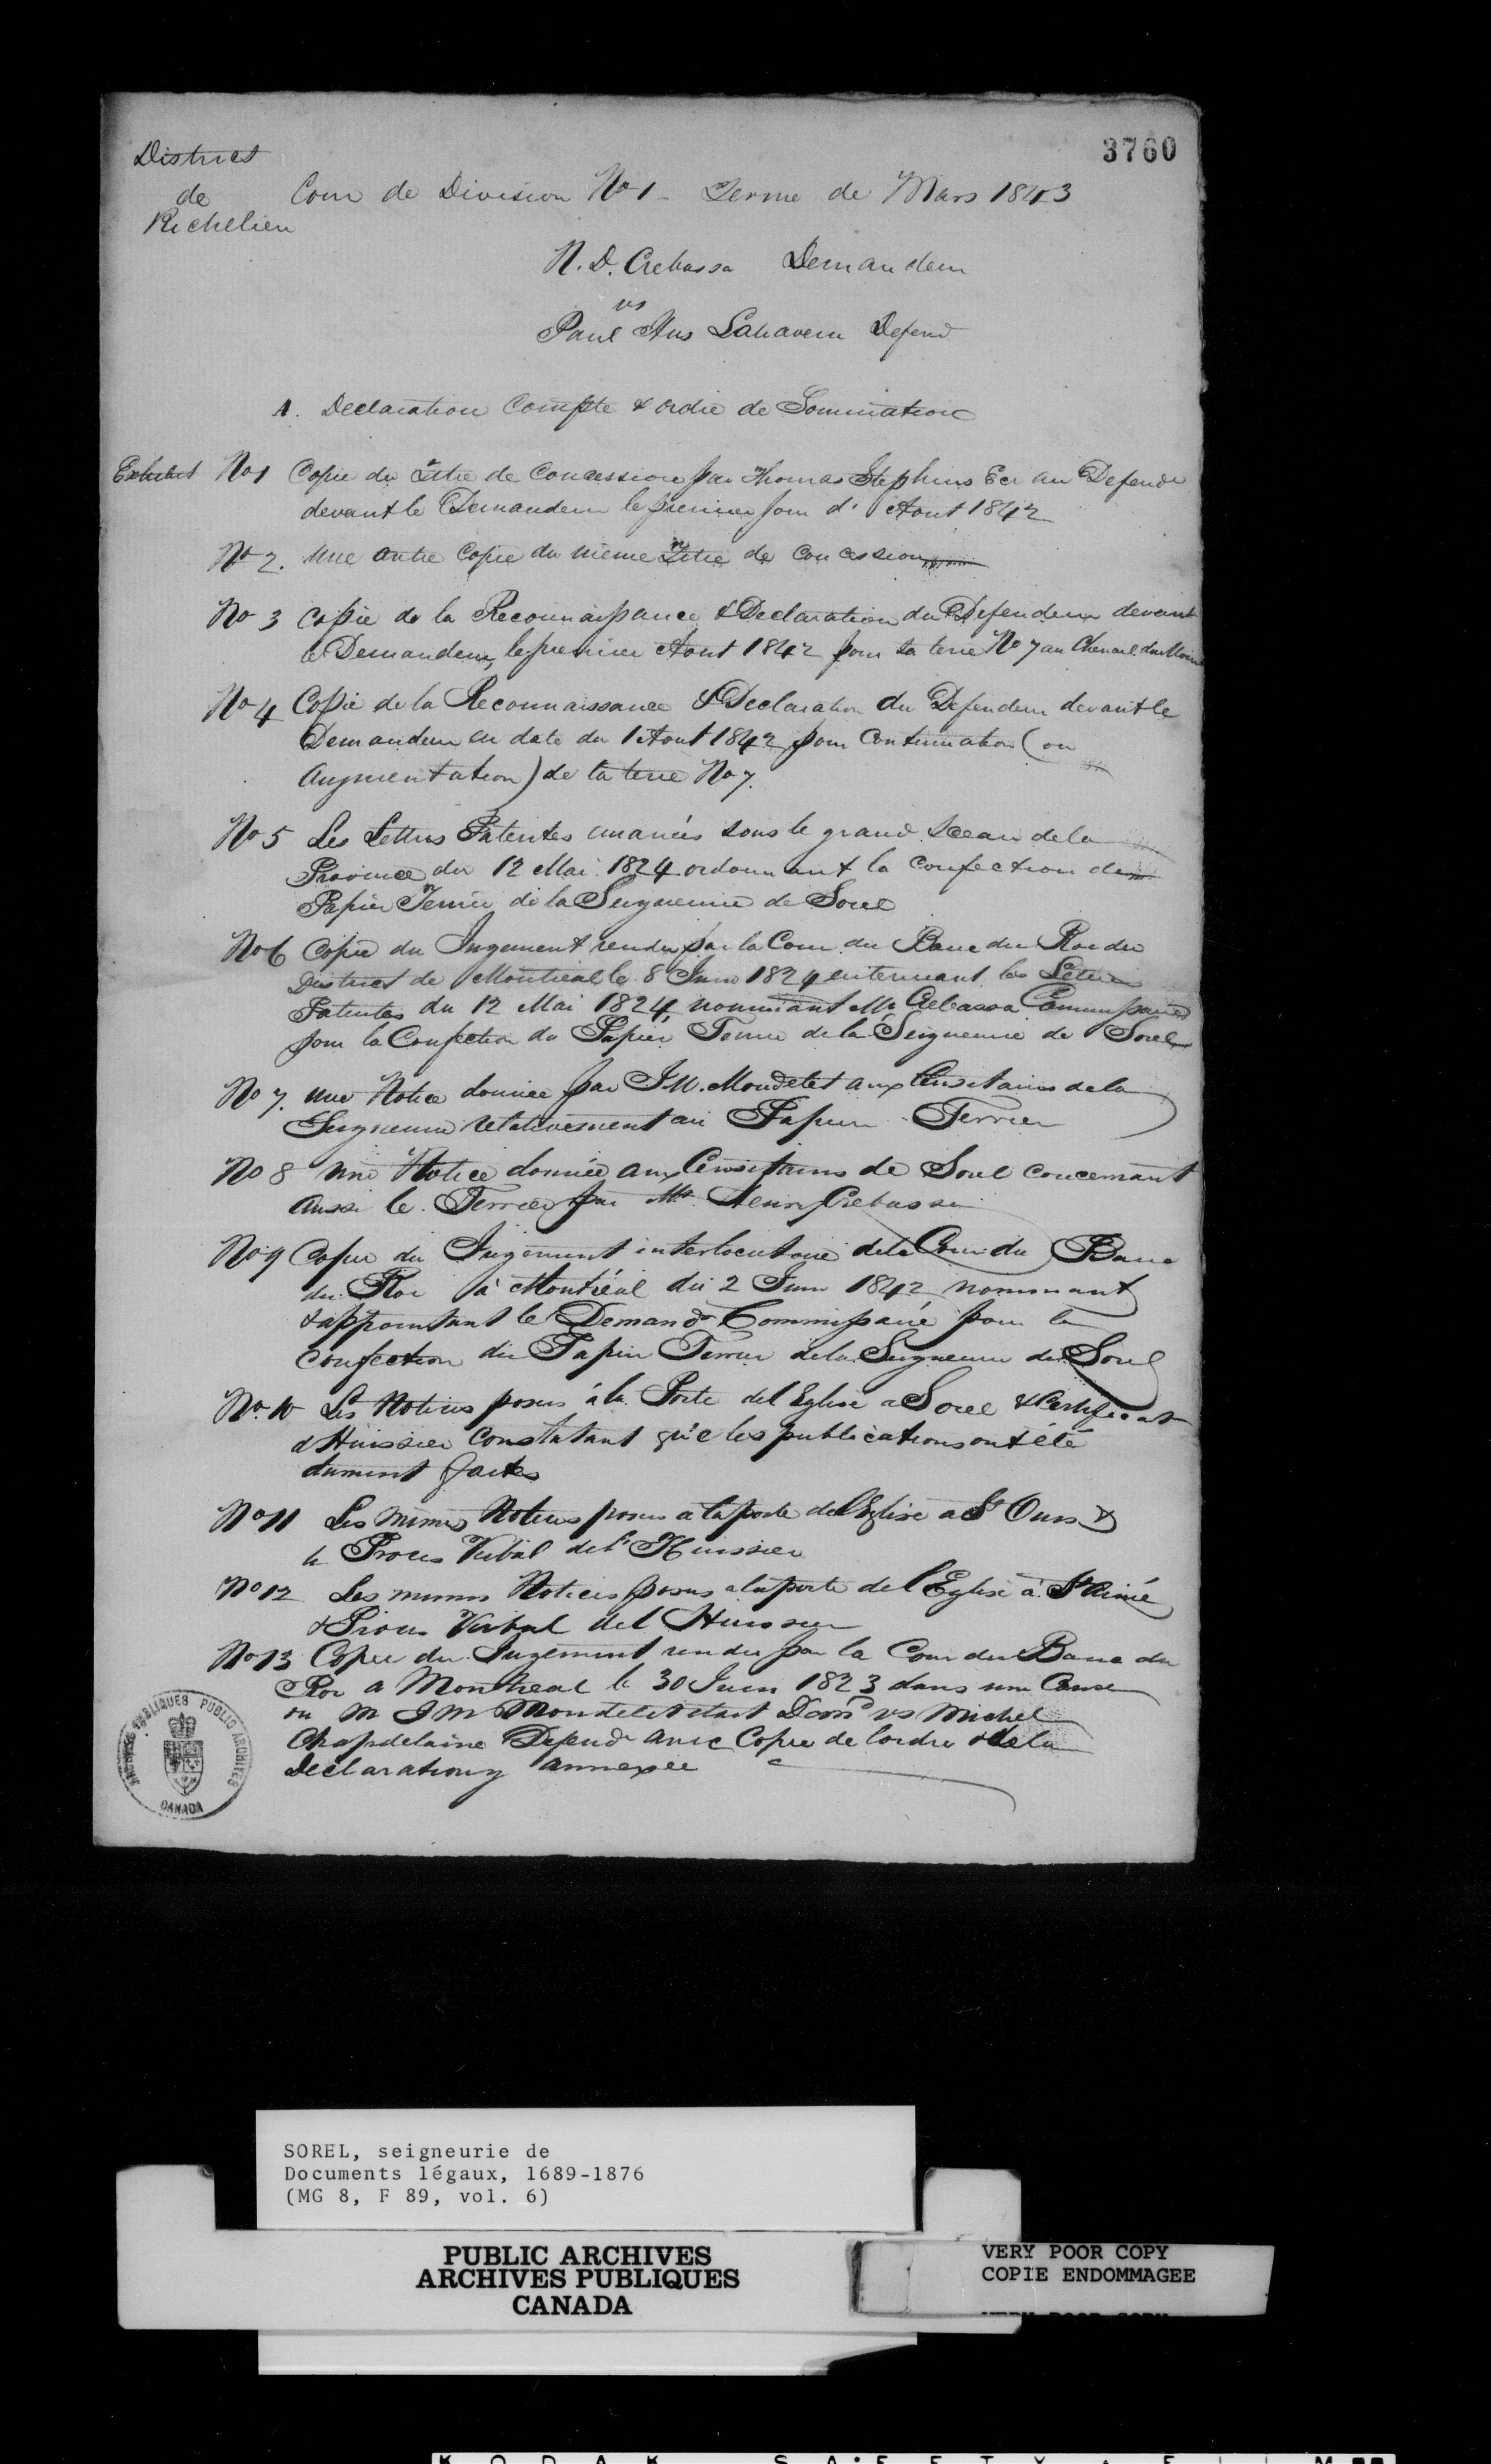 3760
District
de
Richelieu
Cour de Division No 1 - Terme de Mars 1843
N. D. Crebassa Demandeur
vs
Paul Hus Defend
1. Declaration Compte & ordre de Sommation
Exhibit No 1 Copie du Titre de Concession par Thomas Stephens Ecr au Defendr
devant le Demandeur le premier jour d'Aout 1842
No 2. Une autre Copie du meme Titre de Concession
No 3 Copie de la Reconnaissance & Declaration du Defendeur devant
le Demandeur, le premier Aout 1842 pour sa terre No 7 au Chenail du Moine
No 4 Copie de la Reconnaissance & Declaration du Defendeur devant le
Demandeur en date du 1 Aout 1842 pour Continuation (ou
Augmentation) de la terre No 7.
No 5 Les Lettres Patentes emanées sous le grand Sceau de la
Province du 12 Mai 1824 ordonnant la Confection du
Papier Terrier de la Seigneurie de Sorel
No 6 Copie du Jugement rendu par la Cour du Banc du Roi du
District de Montreal le 8 Juin 1824 enterinant les Lettres
Patentes du 12 Mai 1824, nommant Mr Crebassa Commissaire
pour la Confection du Papier Terrier de la Seigneurie de Sorel
No 7. Une Notice donnée par J. M. Mondelet aux Censitaires de la
Seigneurie relativement au Papier Terrier
No 8 Une Notice donnée aux Censitaires de Sorel concernant
aussi le Terrier par Mr Henry Crebassa
No 9 Copie du Jugement interlocutoire de la Cour du Banc
du Roi à Montréal du 2 Juin 1842 nommant
& appointant le Demandr Commissaire pour la
Confection du Papier Terrier de la Seigneurie de Sorel
No. 10 Les Notices posées à la Porte de l'Eglise a Sorel & Certificat
d'Huissier Constatant que les publications ont été
dument faites
No 11 Les mêmes Notices posées a la porte de l'Eglise a St Ours &
le Proces Verbal de l'Huissier
No 12 Les memes Notices posées a la porte de l'Eglise à St Aimé
& Proces Verbal de l'Huissier
No 13 Copie du Jugement rendu par la Cour du Banc du
Roi a Montreal le 30 Juin 1823 dans une Cause
ou M J M Mondelet etait Demd vs Michel
Chapdelaine Defendr avec Copie de l'ordre & de la
Declaration y annexée
ARCHIVES PUBLIQUES PUBLIC ARCHIVES
CANADA
SOREL, seigneurie de
Documents légaux, 1689-1876
(MG 8, F 89, vol. 6)
PUBLIC ARCHIVES
ARCHIVES PUBLIQUES
CANADA
VERY POOR COPY
COPIE ENDOMMAGEE
VERY POOR COPY
KODAK SAFETY